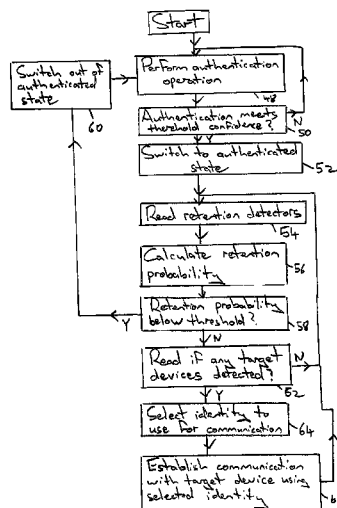 Start
Perform authentication
operation
48
Switch out of
authenticated
state
60
Authentication meets
threshold confidence?
N
50
Y
Switch to authenticated
state
52
Read retention detectors
54
Calculate retention
probability
56
Retention probability
below threshold?
58
Y
N
Read if any target
devices detected?
N
52
Y
Select identity to
use for communication
64
Establish communication
with target device using
selected identity